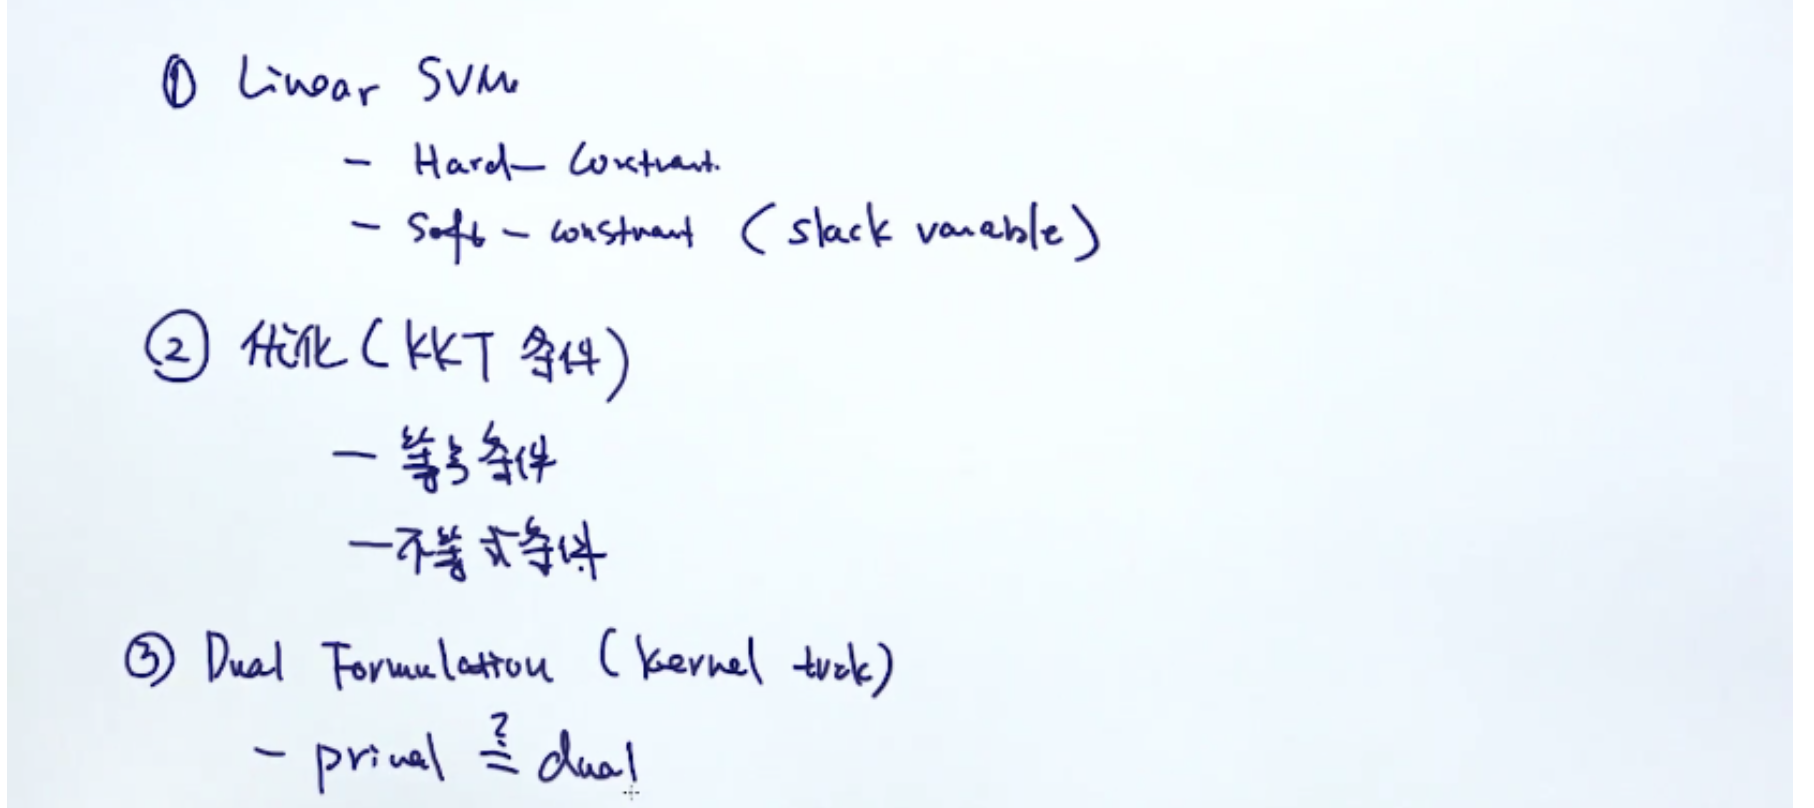 ① Linear SVM
- Hard-Constraint.
- Soft-constraint (slack variable)
② 优化(KKT 条件)
- 等号条件
- 不等式条件
③ Dual Formulation (kernel trick)
- primal ≟ dual